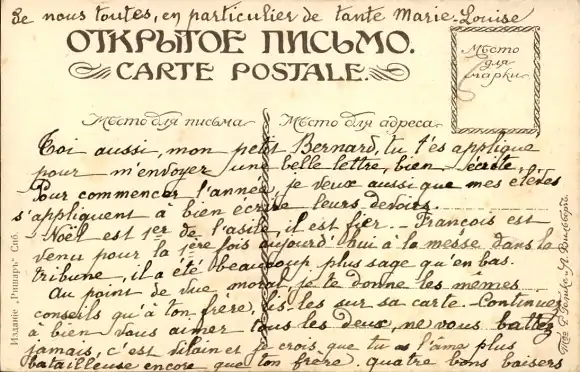 De nous toutes, en particulier de tante Marie-Louise
ОТКРЫТОЕ ПИСЬМО.
CARTE POSTALE.
Мѣсто
для
марки.
Мѣсто для письма
Мѣсто для адреса
Toi aussi, mon petit Bernard, tu t'es appliqué
pour m'envoyer une belle lettre, bien écrite,
Pour commencer l'année, je veux aussi que mes élèves
s'appliquent à bien écrire leurs devoirs.
Noël est 1er de l'asile, il est fier. - François est
venu pour la 1ère fois aujourd'hui à la messe dans la
tribune, il a été beaucoup plus sage qu'en bas.
Au point de vue moral je te donne les mêmes
conseils qu'à ton frère, lis-les sur sa carte. Continuez
à bien vous aimer tous les deux, ne vous battez
jamais, c'est vilain et je crois que tu as l'âme plus
batailleuse encore que ton frère. quatre bons baisers
Изданіе „Ришаръ" Спб.